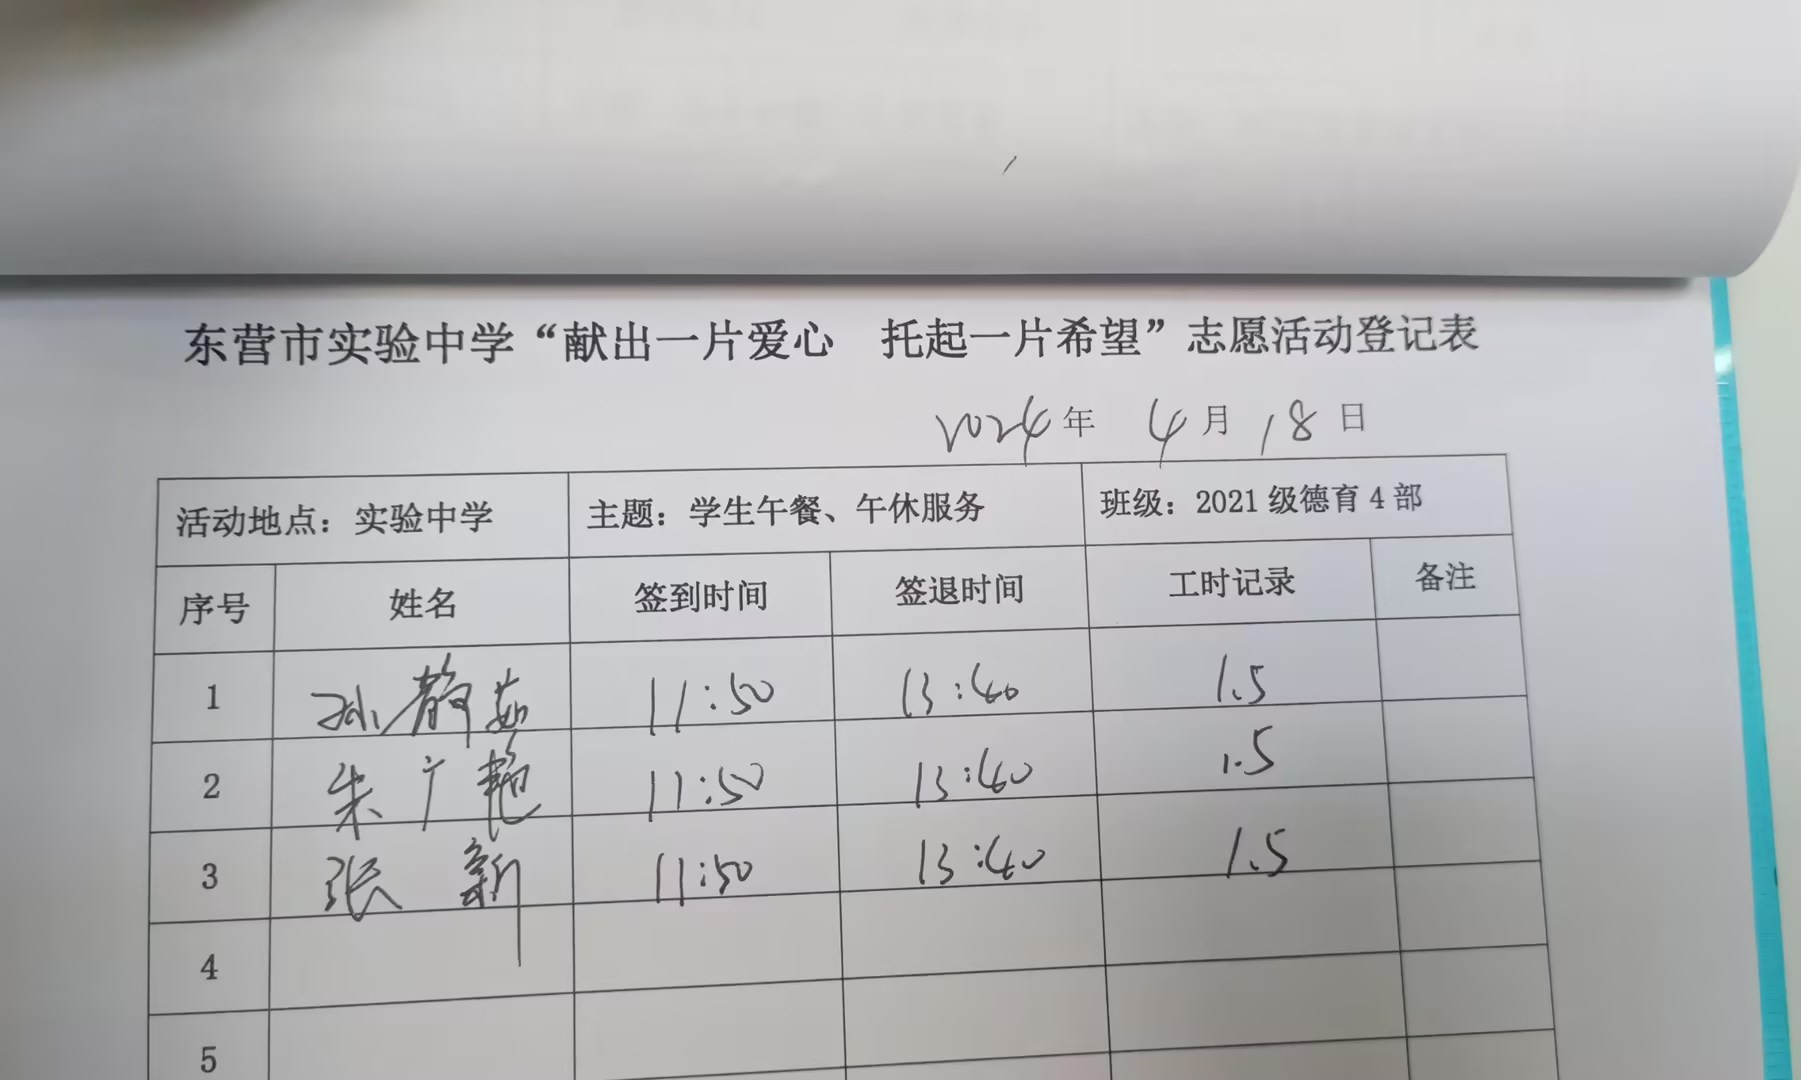 东营市实验中学“献出一片爱心　托起一片希望”志愿活动登记表
2024年 4月 18日
活动地点：实验中学 主题：学生午餐、午休服务 班级：2021级德育4部
序号 姓名 签到时间 签退时间 工时记录 备注
1 孙静茹 11:50 13:40 1.5
2 朱广艳 11:50 13:40 1.5
3 张新 11:50 13:40 1.5
4
5